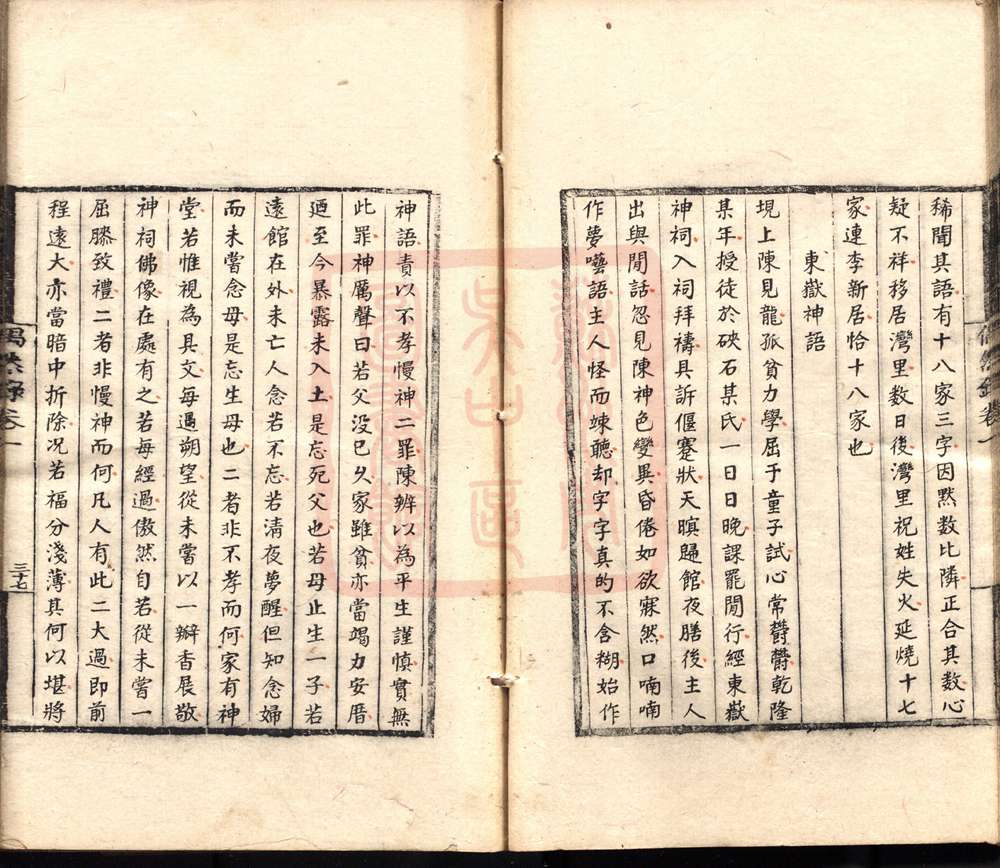 稀聞其語有十八家三字因黙数比隣正合其数心
疑不祥移居灣里数日後灣里祝姓失火延燒十七
家連李新居恰十八家也
東嶽神語
垷上陳見龍孤貧力學屈于童子試心常欝欝乾隆
某年授徒於硤石某氏一日日晚課罷閒行經東嶽
神祠入祠拜禱具訴偃蹇狀天暝歸館夜膳後主人
出與閒話忽見陳神色變異昏倦如欲寐然口喃喃
作夢囈語主人怪而竦聽却字字真的不含糊始作
神語責以不孝慢神二罪陳辨以為平生謹慎實無
此罪神厲聲曰若父没已久家雖貧亦當竭力安厝
廼至今暴露未入土是忘死父也若母止生一子若
遠館在外未亡人念若不忘若清夜夢醒但知念婦
而未嘗念母是忘生母也二者非不孝而何家有神
堂若惟視為具文每遇朔望從未嘗以一瓣香展敬
神祠佛像在處有之若每經過傲然自若從未嘗一
屈膝致禮二者非慢神而何凡人有此二大過即前
程遠大亦當暗中折除况若福分淺薄其何以堪將
偶然錄卷一
三十七